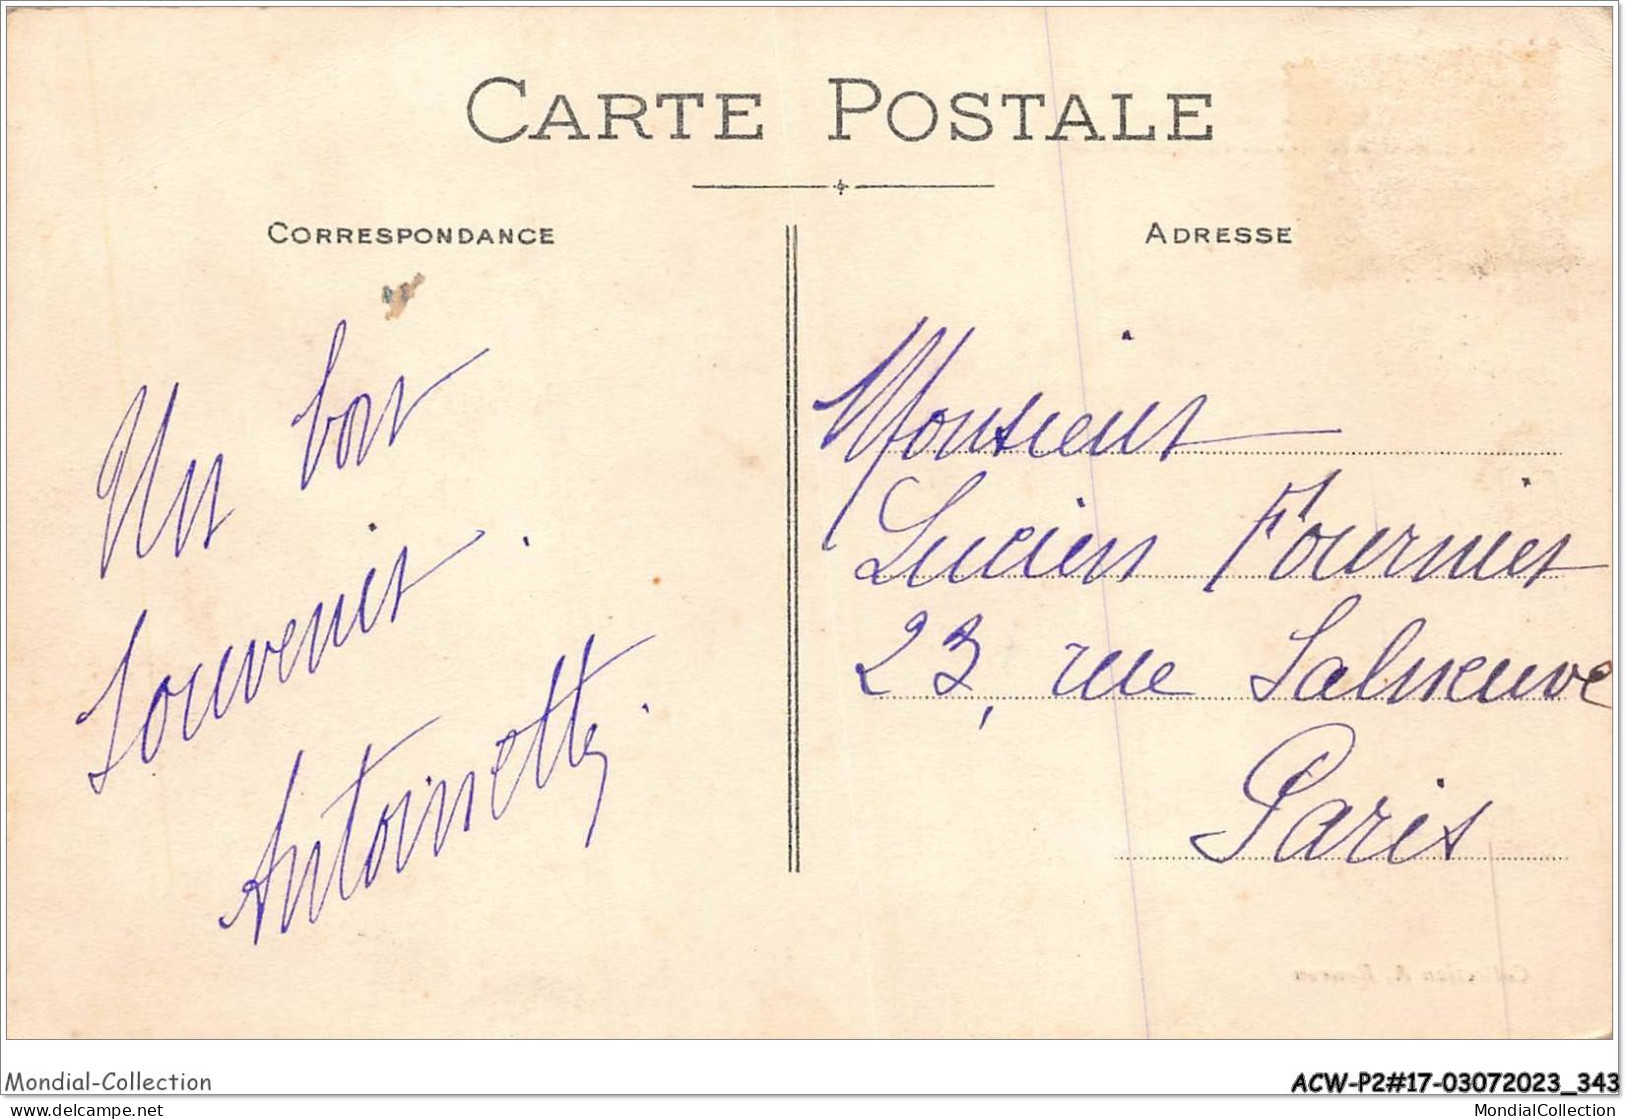 CARTE POSTALE
CORRESPONDANCE
ADRESSE
Un bon
Souvenir.
Antoinette.
Monsieur
Lucien Fournier
23, rue Salneuve
Paris
Mondial-Collection
ACW-P2#17-03072023_343
www.delcampe.net
MondialCollection